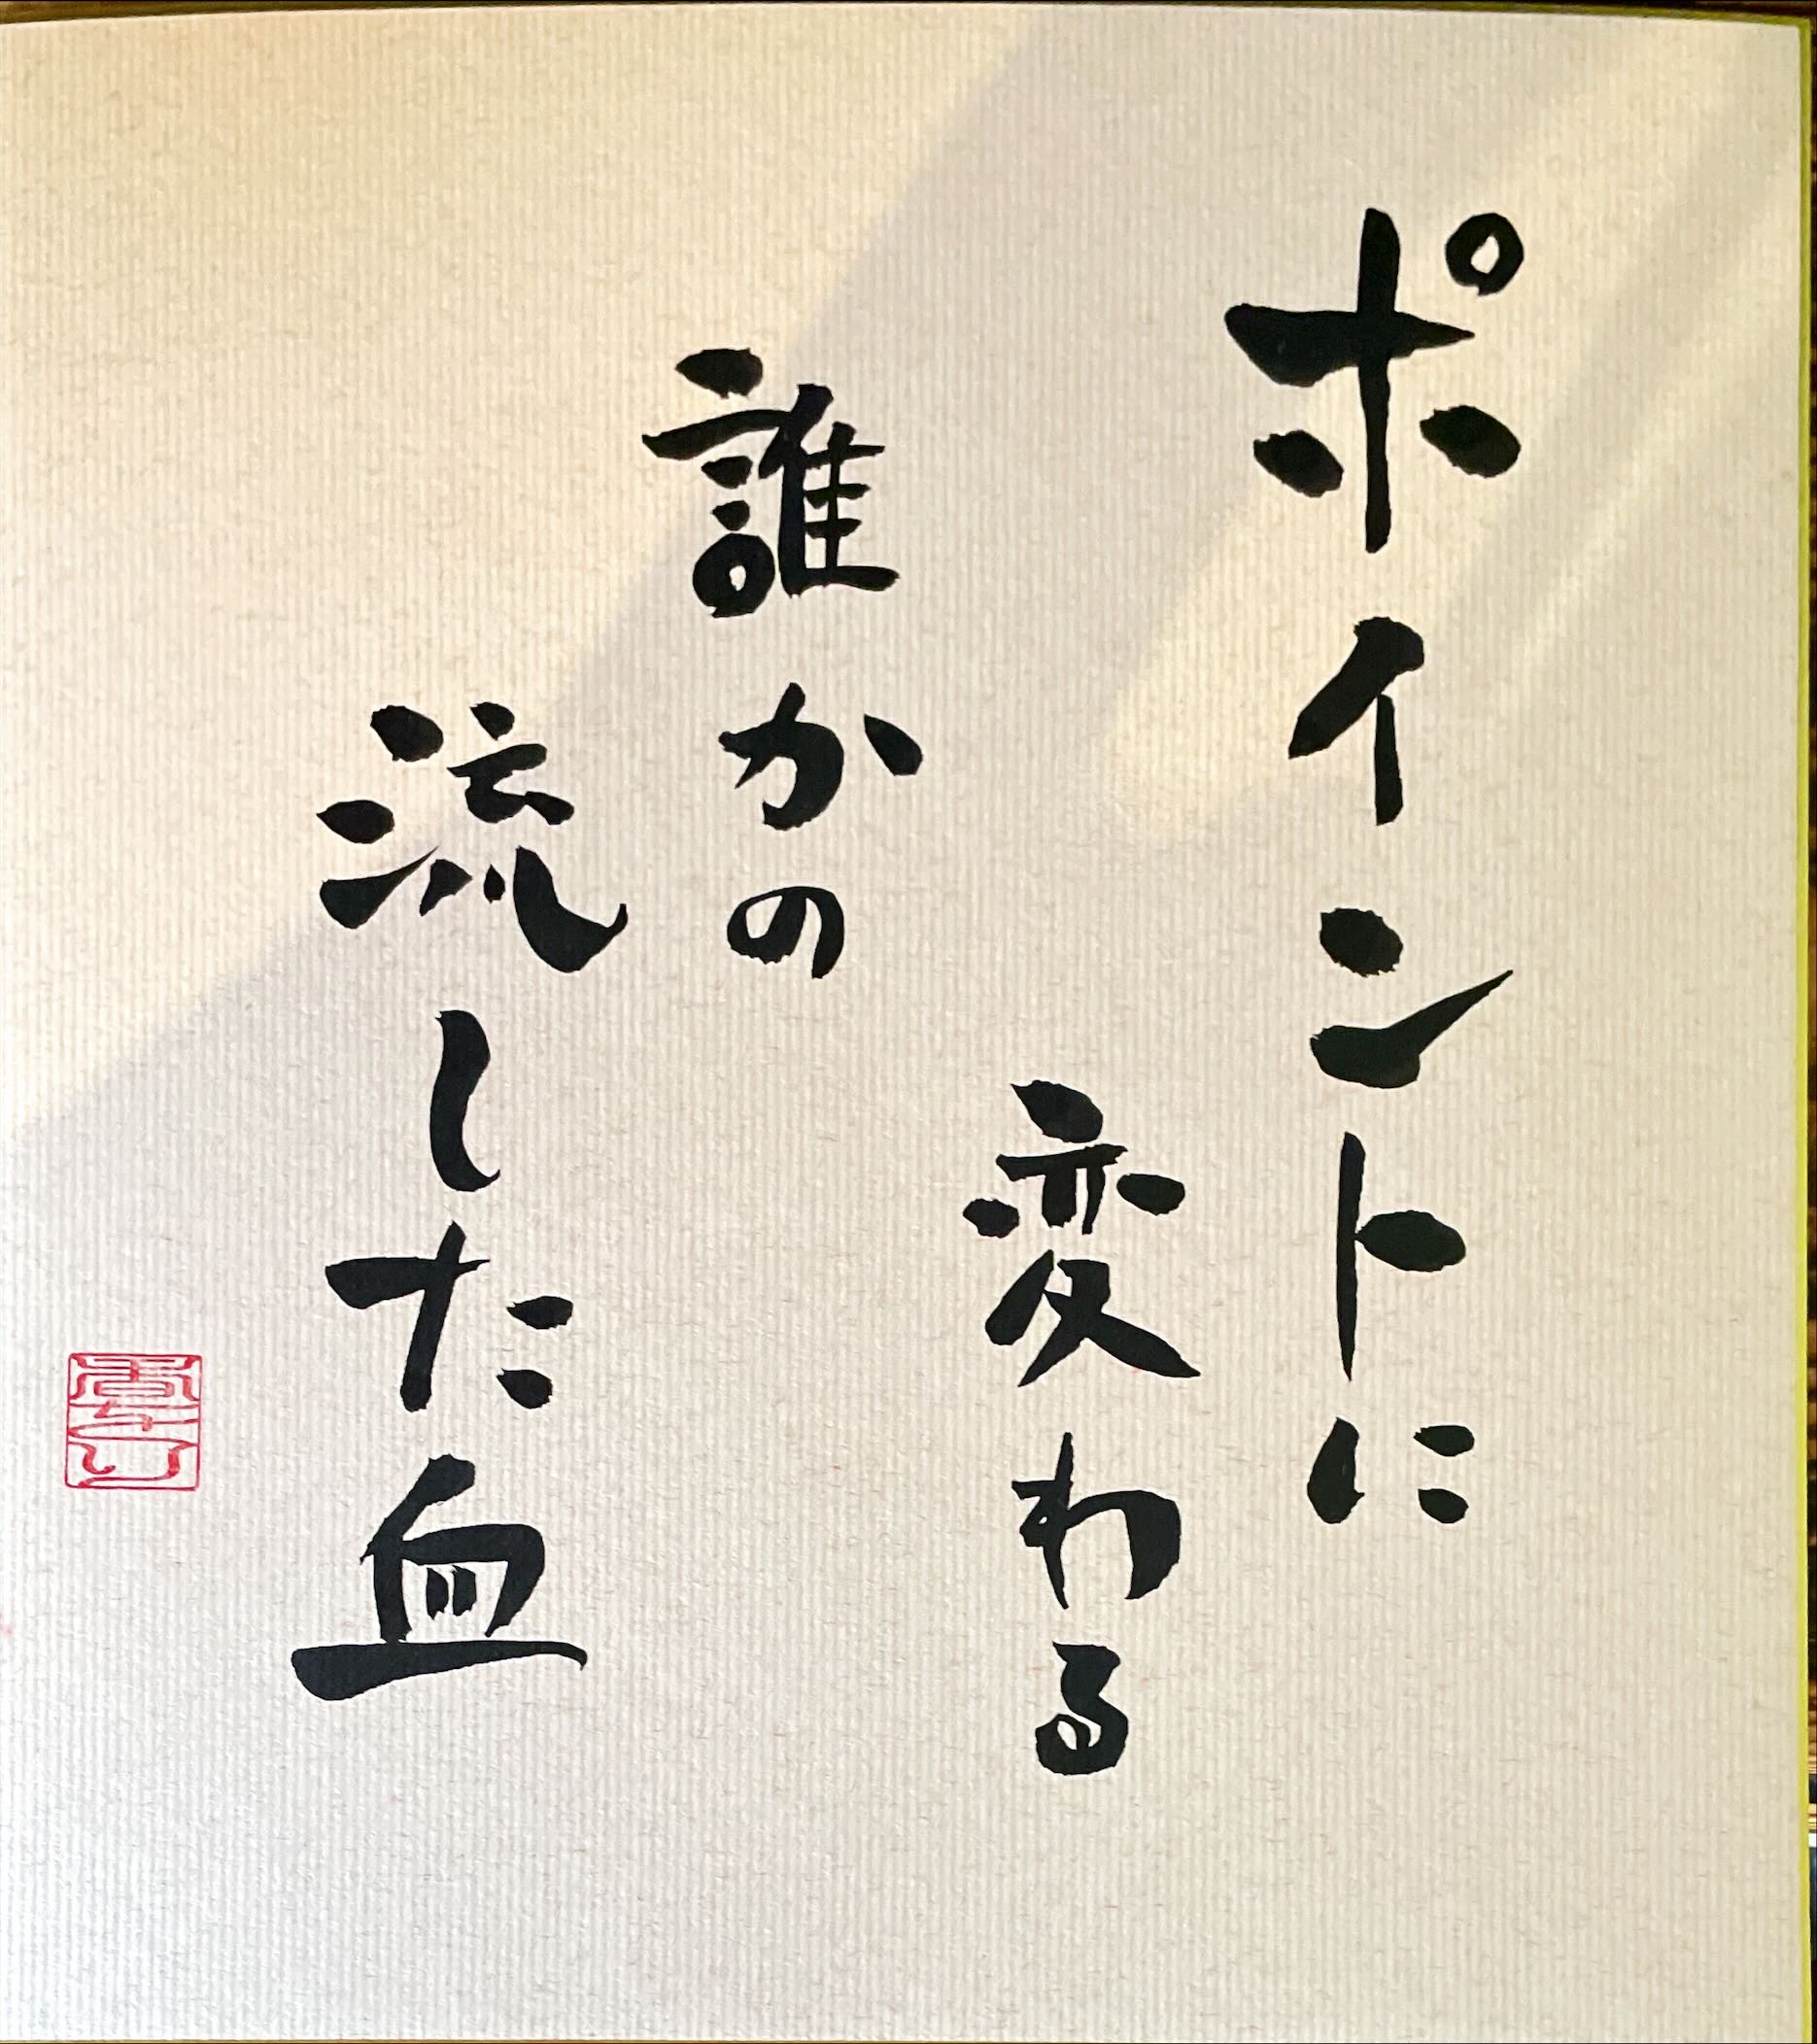 ポイントに
変わる
誰かの
流した血